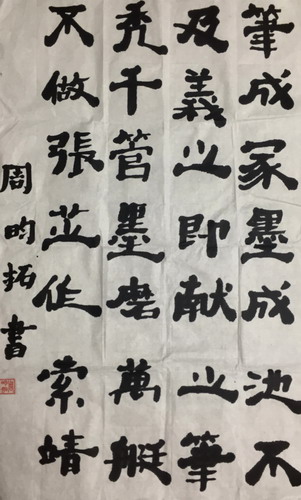 筆成冢墨成池不
及義之即献之筆
秃千管墨磨萬艇
不做張芝作索靖
周昀拓書